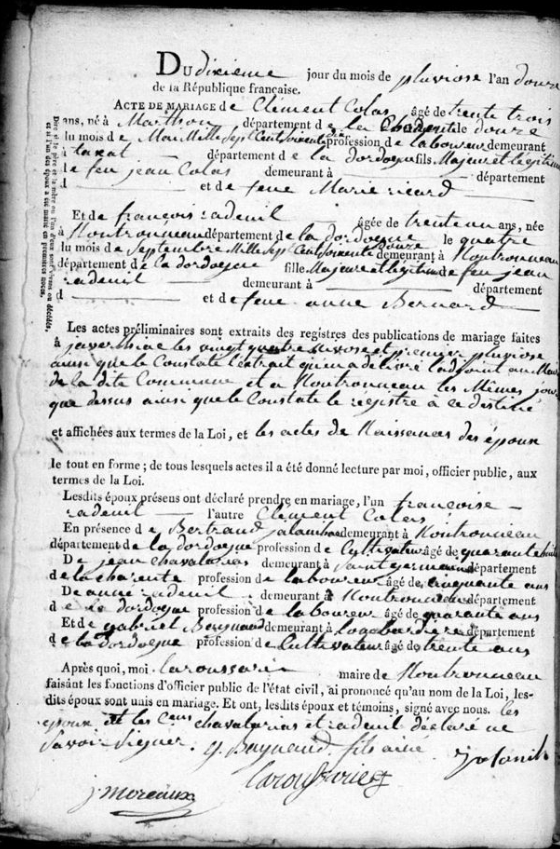 Du dixieme jour du mois de pluviose l'an douze
de la République française.
Acte de mariage de Clément Colas âgé de trente trois
ans, né à Marthon département de la Charente le douze
du mois de Mai Mille Sept Cent Soixante dix profession de laboureur demeurant
à département de la dordogne fils Majeur et légitime
de feu jean Colas demeurant à département
d et de feue Marie ricard
Et de françoise radeuil âgée de trente un ans, née
à Nontronneau département de la dordogne le quatre
du mois de Septembre Mille Sept Cent Soixante Douze demeurant à Nontronneau
département de la dordogne fille Majeure et légitime de feu jean
radeuil demeurant à département
d et de feue anne Bernard
Les actes préliminaires sont extraits des registres des publications de mariage faites
à javerlhiac les vingt quatre nivose et premier pluviose
ainsi que le Constate l'extrait qui m'a délivré l'adjoint au Maire
de la dite Commune et a Nontronneau les Mêmes jours
que dessus ainsi que le Constate le registre à ce destiné
et affichées aux termes de la Loi, et les actes de Naissances des époux
le tout en forme; de tous lesquels actes il a été donné lecture par moi, officier public, aux
termes de la Loi.
Lesdits époux présens ont déclaré prendre en mariage, l'un françoise
radeuil l'autre Clément Colas
En présence de Bertrand demeurant à Nontronneau
département de la dordogne profession de Cultivateur âgé de quarante
De jean chavalarias demeurant à Saint germain département
de la charente profession de laboureur âgé de cinquante ans
De radeuil demeurant à Nontronneau département
de la dordogne profession de laboureur âgé de quarante ans
Et de gabriel demeurant à département
de la dordogne profession de Cultivateur âgé de trente ans
Après quoi, moi maire de Nontronneau
faisant les fonctions d'officier public de l'état civil, ai prononcé qu'au nom de la Loi, les-
dits époux sont unis en mariage. Et ont, lesdits époux et témoins, signé avec nous. les
époux et les chavalarias et radeuil déclaré ne
Savoir Signer. fils ainé
j moreaux